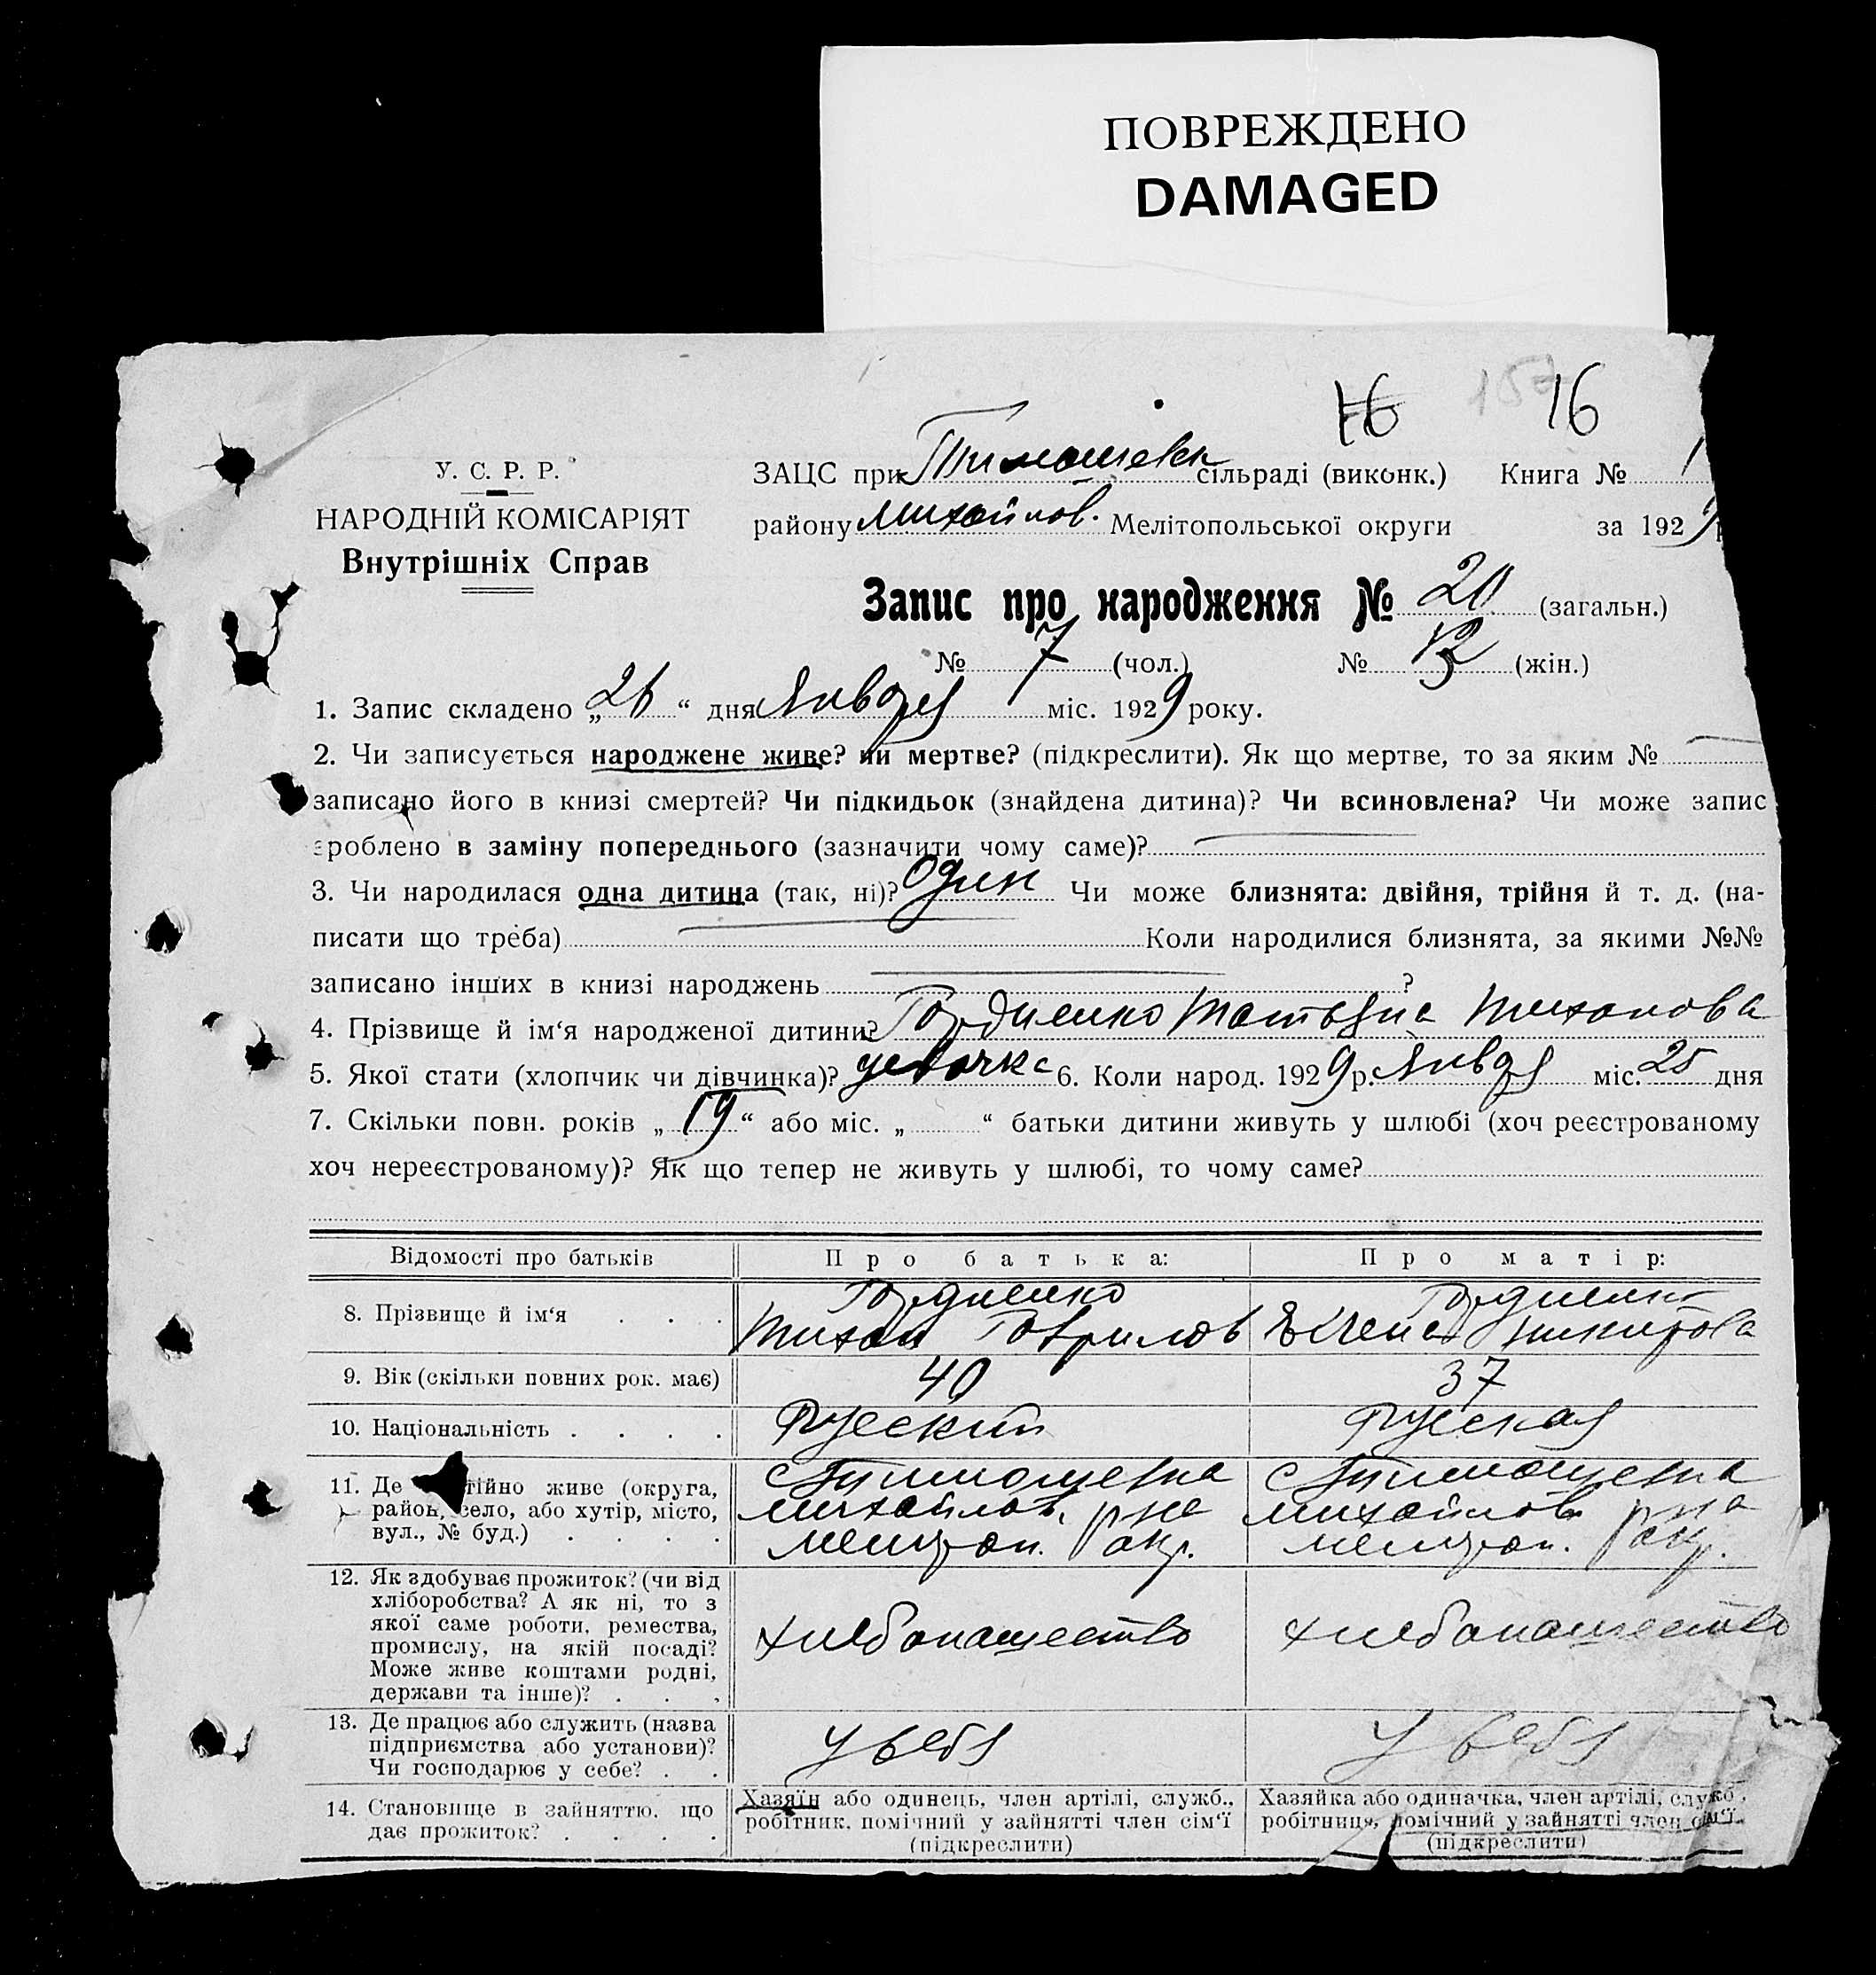 ПОВРЕЖДЕНО
DAMAGED
16 157 16
У. С. Р. Р.
НАРОДНІЙ КОМІСАРІЯТ
Внутрішніх Справ
ЗАЦС при Тимошевск сільраді (виконк.) Книга № 1
району Михайлов. Мелітопольської округи за 1929
Запис про народження № 20 (загальн.)
№ 7 (чол.) № (жін.)
1. Запис складено „26“ дня Января міс. 1929 року.
2. Чи записується народжене живе? чи мертве? (підкреслити). Як що мертве, то за яким №
записано його в книзі смертей? Чи підкидьок (знайдена дитина)? Чи всиновлена? Чи може запис
зроблено в заміну попереднього (зазначити чому саме)?
3. Чи народилася одна дитина (так, ні)? Один Чи може близнята: двійня, трійня й т. д. (на-
писати що треба) Коли народилися близнята, за якими №№
записано інших в книзі народжень ?
4. Прізвище й ім‘я народженої дитини? Гордиенко Татьяна Тихонова
5. Якої стати (хлопчик чи дівчинка)? девочка 6. Коли народ. 1929 р. Января міс. 25 дня
7. Скільки повн. років „19“ або міс. „ “ батьки дитини живуть у шлюбі (хоч реєстрованому
хоч нереєстрованому)? Як що тепер не живуть у шлюбі, то чому саме?
Відомості про батьків Про батька: Про матір:
8. Прізвище й ім‘я . . . Гордиенко Тихон Гаврилов Гордиенко Елена Никитова
9. Вік (скільки повних рок. має) 40 37
10. Національність . . . . Русский Русская
11. Де тійно живе (округа,
район, село, або хутір, місто,
вул., № буд.) . . . .
с Тимошевка
михайлов. р на
мелитоп. окр.
с Тимошевка
михайлов р на
мелитоп. окр.
12. Як здобуває прожиток? (чи від
хліборобства? А як ні, то з
якої саме роботи, ремества,
промислу, на якій посаді?
Може живе коштами родні,
держави та інше)? . . .
хлебопашество хлебопашество
13. Де працює або служить (назва
підприємства або установи)?
Чи господарює у себе? . .
у себя у себя
14. Становище в зайняттю, що
дає прожиток? . . . .
Хазяїн або одинець, член артілі, служб.,
робітник, помічний у зайнятті член сім‘ї
(підкреслити)
Хазяйка або одиначка, член артілі, служб.,
робітниця, помічний у зайнятті член сім‘ї.
(підкреслити)